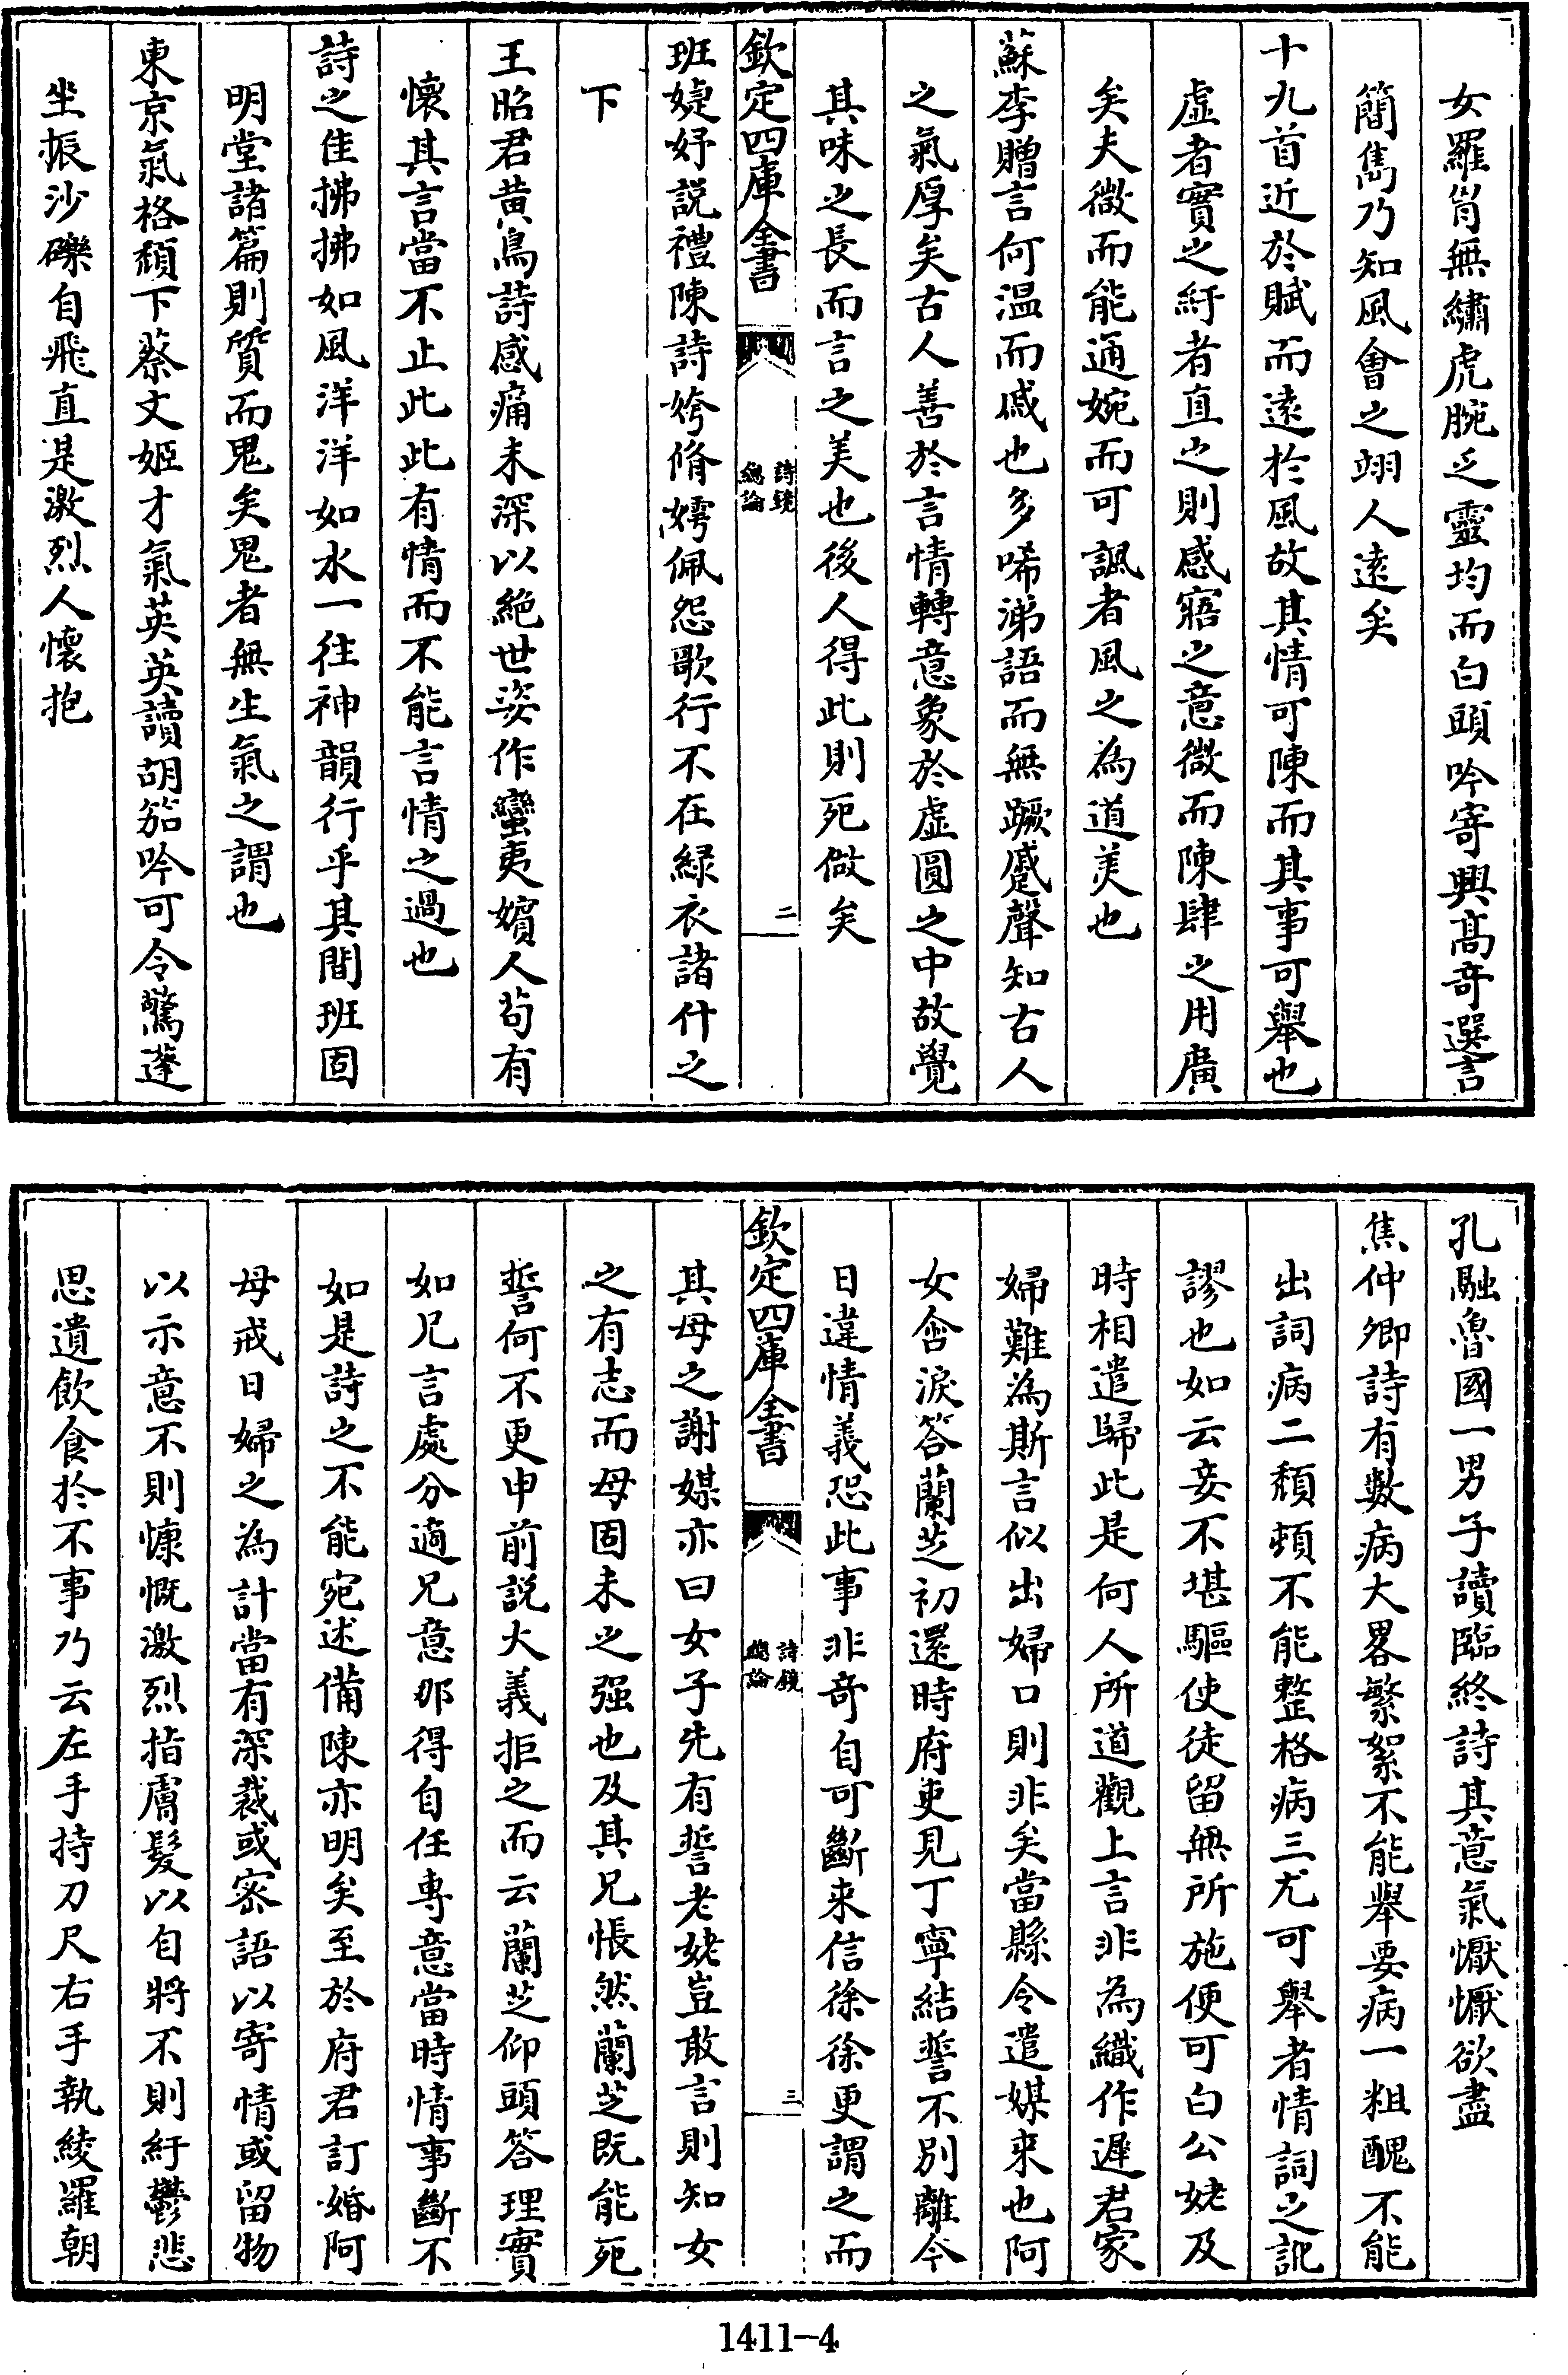 女羅胷無繡虎腕乏靈均而白頭吟寄興髙竒選言
簡雋乃知風會之翊人逺矣
十九首近於賦而逺於風故其情可陳而其事可舉也
虛者實之紆者直之則感寤之意微而陳肆之用廣
矣夫微而能通婉而可諷者風之為道美也
蘇李贈言何温而戚也多唏涕語而無蹶蹙聲知古人
之氣厚矣古人善於言情轉意象於虛圓之中故覺
其味之長而言之美也後人得此則死做矣
欽定四庫全書
詩鏡
總論
二
班婕妤説禮陳詩姱脩嫮佩怨歌行不在緑衣諸什之
下
王昭君黄鳥詩感痛未深以絶世姿作蠻夷嬪人茍有
懷其言當不止此此有情而不能言情之過也
詩之佳拂拂如風洋洋如水一往神韻行乎其間班固
明堂諸篇則質而鬼矣鬼者無生氣之謂也
東京氣格頽下蔡文姬才氣英英讀胡笳吟可令驚蓬
坐振沙礫自飛直是激烈人懷抱
孔融魯國一男子讀臨終詩其意氣懨懨欲盡
焦仲卿詩有數病大畧繁絮不能舉要病一粗醜不能
出詞病二頽頓不能整格病三尤可舉者情詞之訛
謬也如云妾不堪驅使徒留無所施便可白公姥及
時相遣歸此是何人所道觀上言非為織作遲君家
婦難為斯言似出婦口則非矣當縣令遣媒來也阿
女含淚答蘭芝初還時府吏見丁寧結誓不别離今
日違情義恐此事非竒自可斷來信徐徐更謂之而
欽定四庫全書
詩鏡
總論
三
其母之謝媒亦曰女子先有誓老姥豈敢言則知女
之有志而母固未之强也及其兄悵然蘭芝既能死
誓何不更申前説大義拒之而云蘭芝仰頭答理實
如兄言處分適兄意那得自任專意當時情事斷不
如是詩之不能宛述備陳亦明矣至於府君訂婚阿
母戒日婦之為計當有深裁或宻語以寄情或留物
以示意不則慷慨激烈指膚髪以自將不則紆鬱悲
思遺飲食於不事乃云左手持刀尺右手執綾羅朝
1411-4